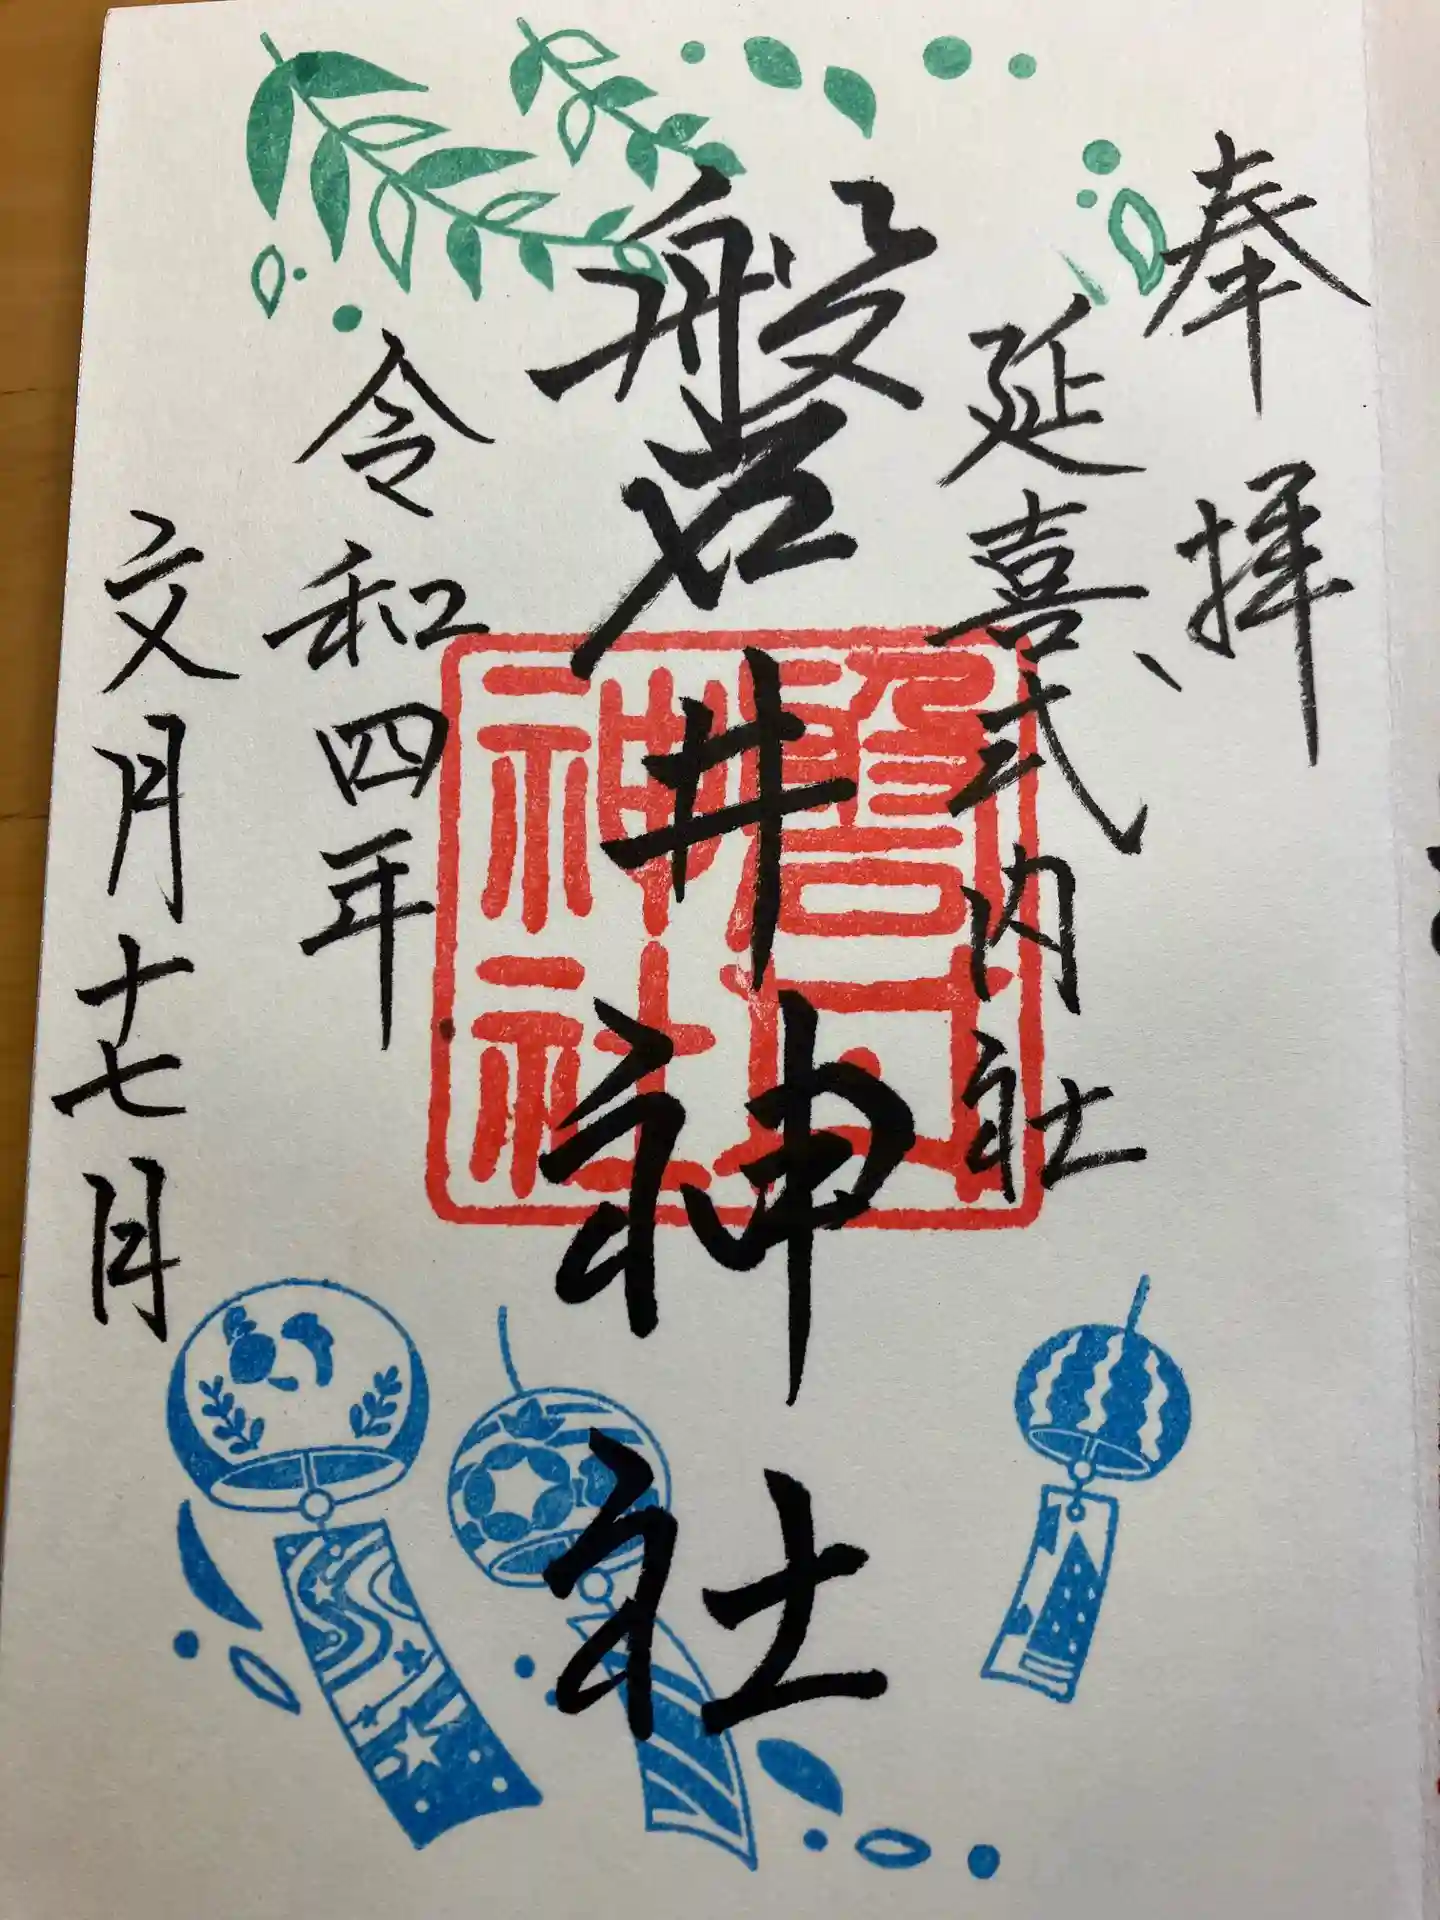 奉拝
延喜式内社
磐井神社
磐井
神社
令和四年
文月十七日